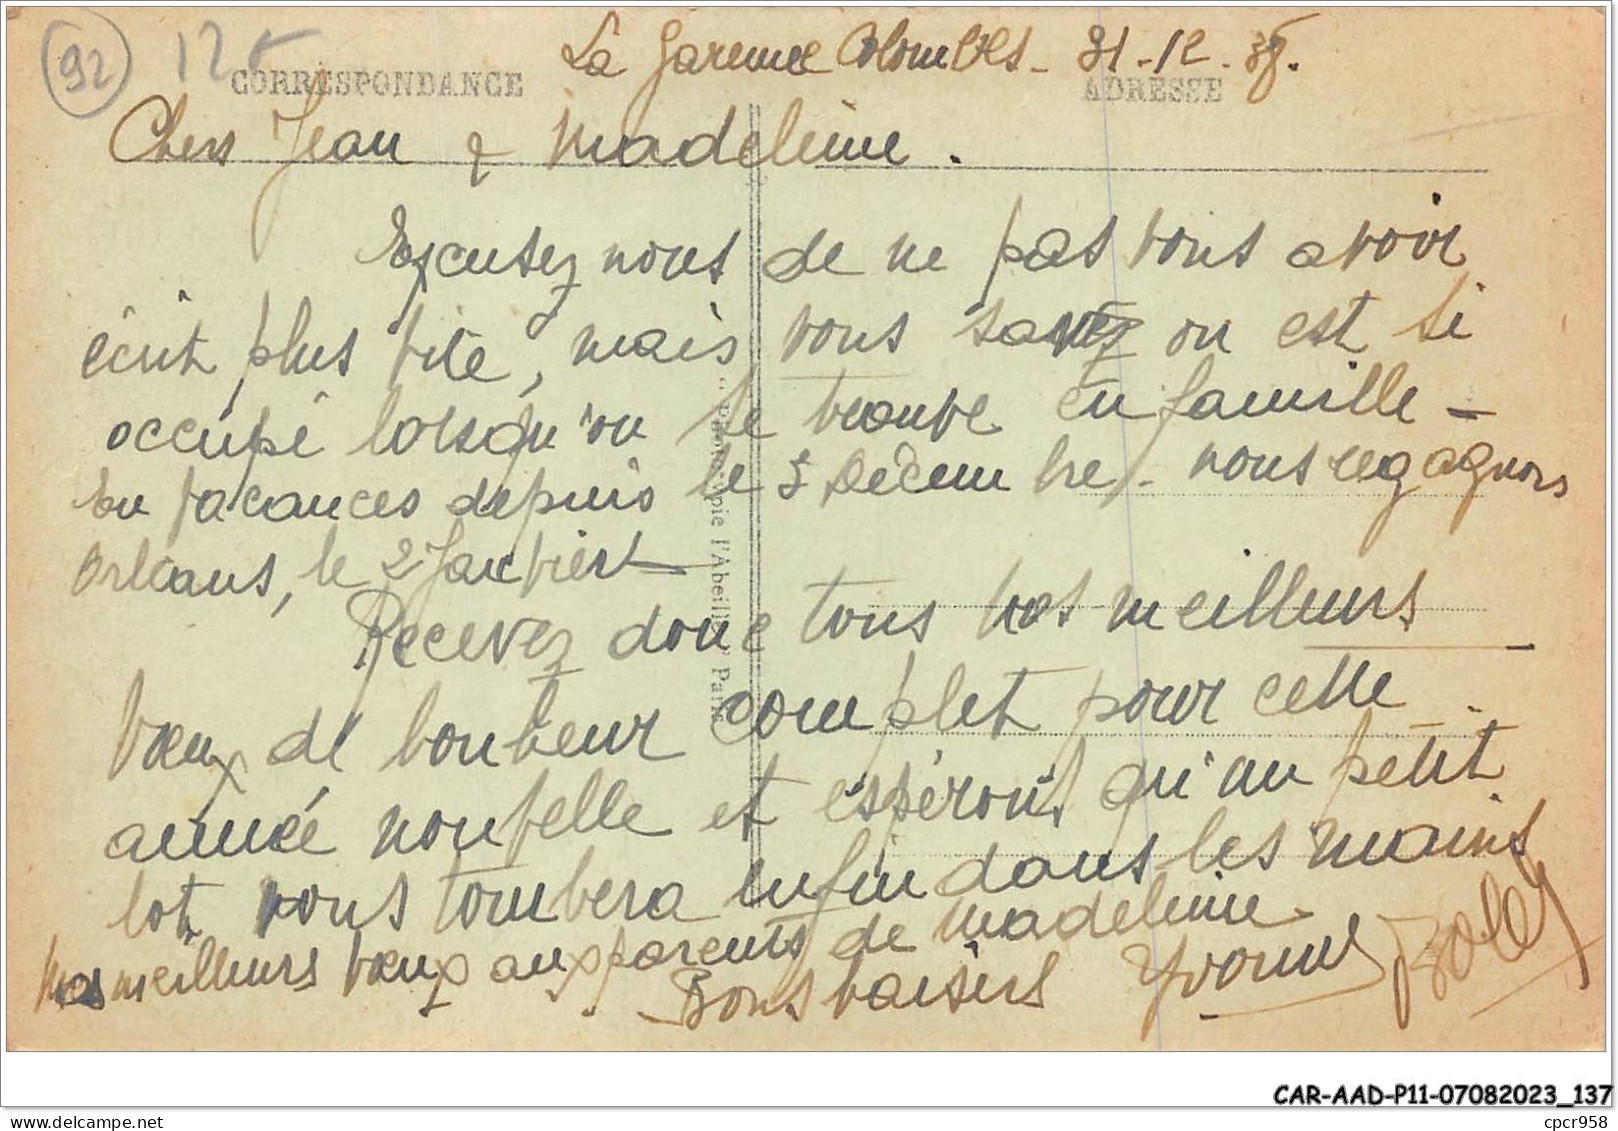 92
12
La Garenne Colombes - 31-12-38.
CORRESPONDANCE
ADRESSE
Chers Jean & Madeleine.
Excusez nous de ne pas vous avoir
écrit plus vite, mais vous savez on est si
occupé lorsqu'on se trouve en famille -
En vacances depuis le 5 Décembre, - nous regagnons
Orléans, le 2 Janvier
Recevez donc tous nos meilleurs
vœux de bonheur complet pour cette
année nouvelle et espérons qu'un petit
lot vous tombera enfin dans les mains
Nos meilleurs vœux aux parents de Madeleine.
Bons baisers Yvonne
Phototypie l'Abeille Paris
CAR-AAD-P11-07082023_137
cpcr958